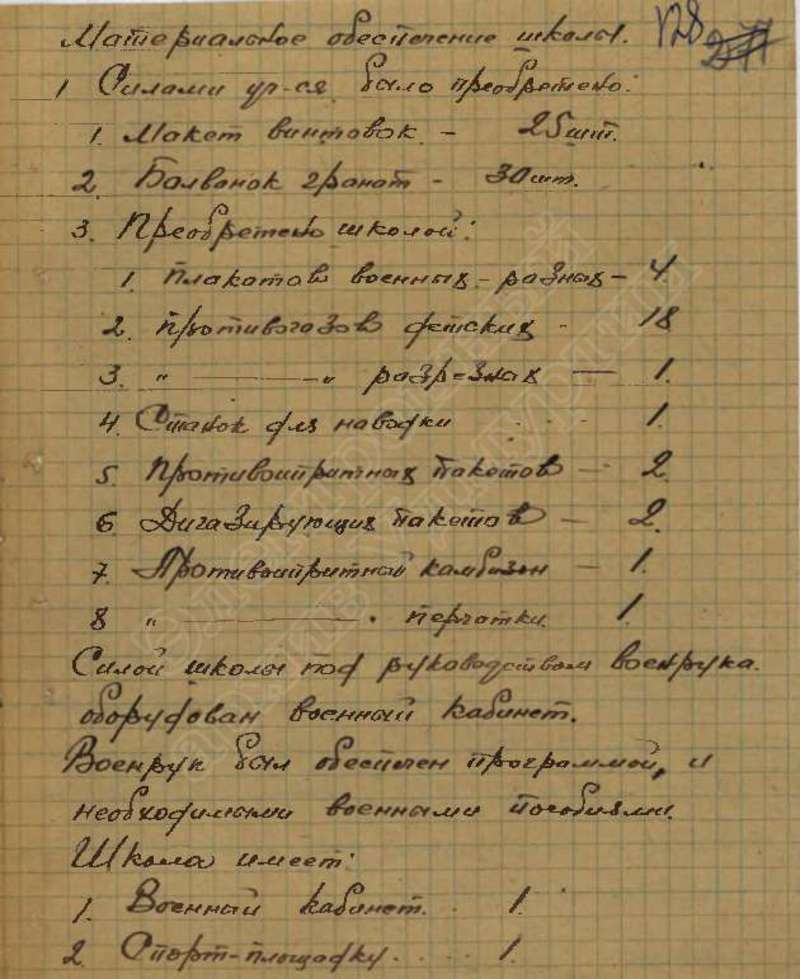 Материальное обеспечение школы. 128
1 Силами уч-ся было преобретено:
1. Макет винтовок - 25 шт.
2. Болванок гранат - 30 шт.
3. Преобретено школой:
1. Плакатов военных - разных - 4
2. Противогазов детских - 18
3. " —— " разр-знак — 1.
4. Станок для наводки . . . 1.
5. Противоипритных пакетов — 2
6. Дигазирующих пакетов — 2.
7. Противоипритный камбизон — 1.
8 " —— . перчатки. 1.
Силой школы под руководством военрука.
оборудован военный кабинет.
Военрук был обеспечен программой, и
необходимыми военными пособиями.
Школа имеет:
1. Военный кабинет. . 1.
2. Спорт-площадку . . . . 1.